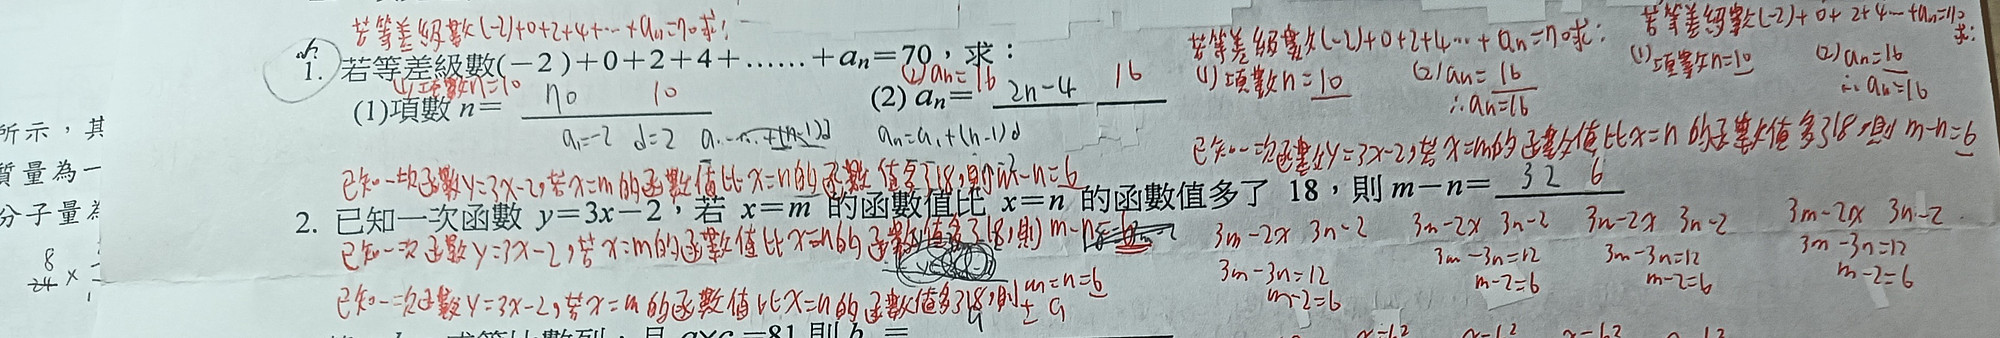 若等差級數(-2)+0+2+4+…+an=70求:
1. 若等差級數(－2)+0+2+4+……+an=70，求：
(1)項數n=10 (2)an=16
(1)項數 n= 10 (2) an= 2n-4 16
a1=-2 d=2 an=a1+(n-1)d
若等差級數(-2)+0+2+4…+an=70求:
(1)項數n=10 (2)an=16
∴an=16
若等差級數(-2)+0+2+4…+an=70求:
(1)項數n=10 (2)an=16
∴an=16
已知一次函數y=3x-2,若x=m的函數值比x=n的函數值多了18,則m-n=6
已知一次函數y=3x-2,若x=m的函數值比x=n的函數值多了18,則m-n=6
2. 已知一次函數 y=3x－2，若 x=m 的函數值比 x=n 的函數值多了 18，則 m－n= 32 6
已知一次函數y=3x-2,若x=m的函數值比x=n的函數值多了18,則m-n=6
已知一次函數y=3x-2,若x=m的函數值比x=n的函數值多了18,則m=n=6
± 9
3m-2x 3n-2 3m-2x 3n-2 3n-2x 3n-2 3m-2x 3n-2
3m-3n=12 3m-3n=12 3m-3n=12 3m-3n=12
m-2=6 m-2=6 m-2=6 m-2=6
所示，其
質量為一
分子量為
8
24 ×
=81